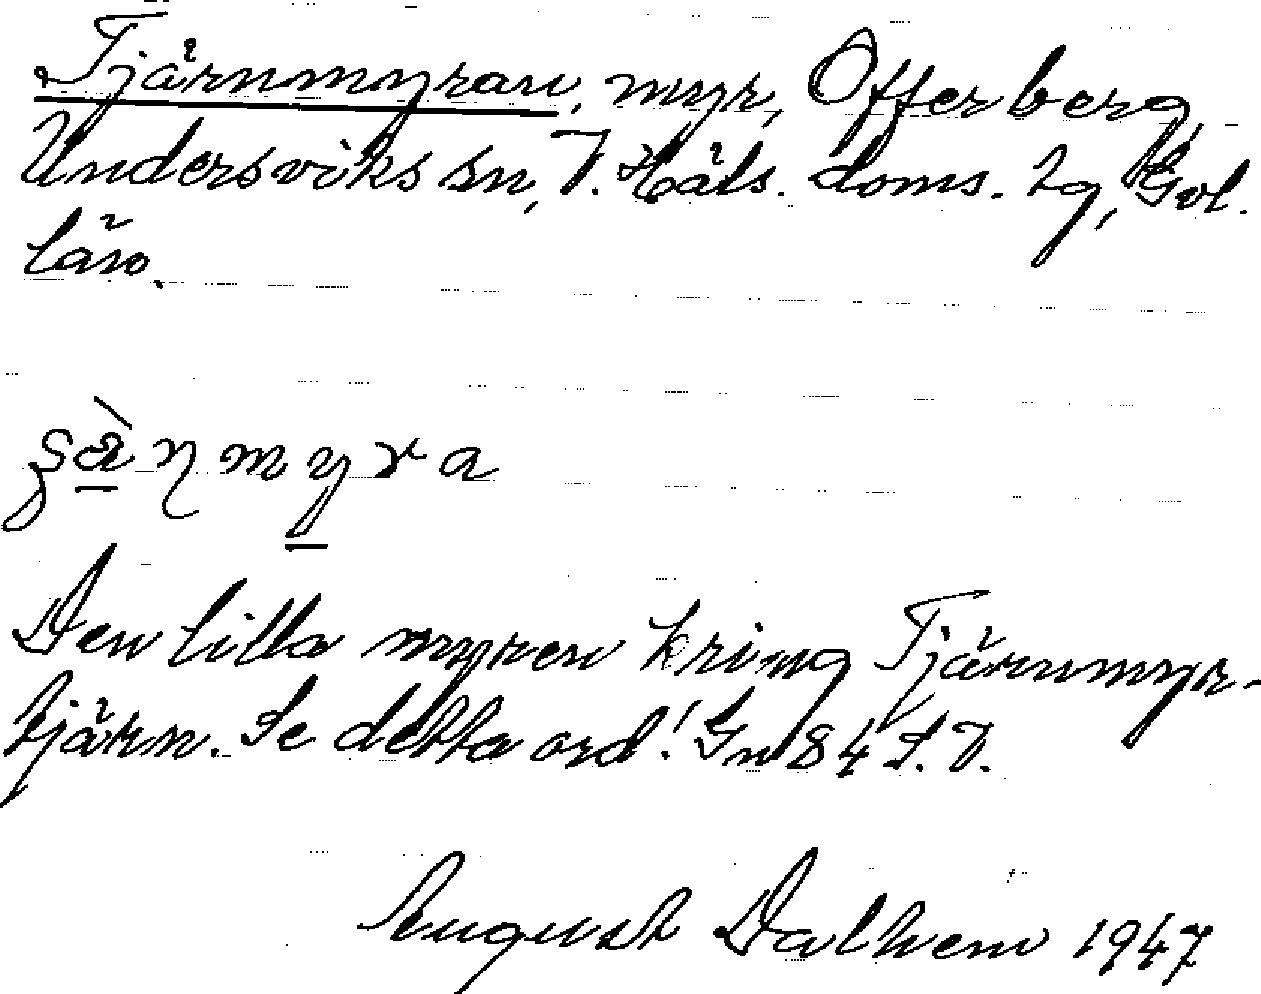 Tjärnmyran, myr, Offerberg,
Undersviks sn, V. Häls. doms. lg, Gvl.
län.
myra
Den lilla myren kring Tjärnmyr-
tjärn. Se detta ord! Gn 84 S. V.
August Dalhem 1947